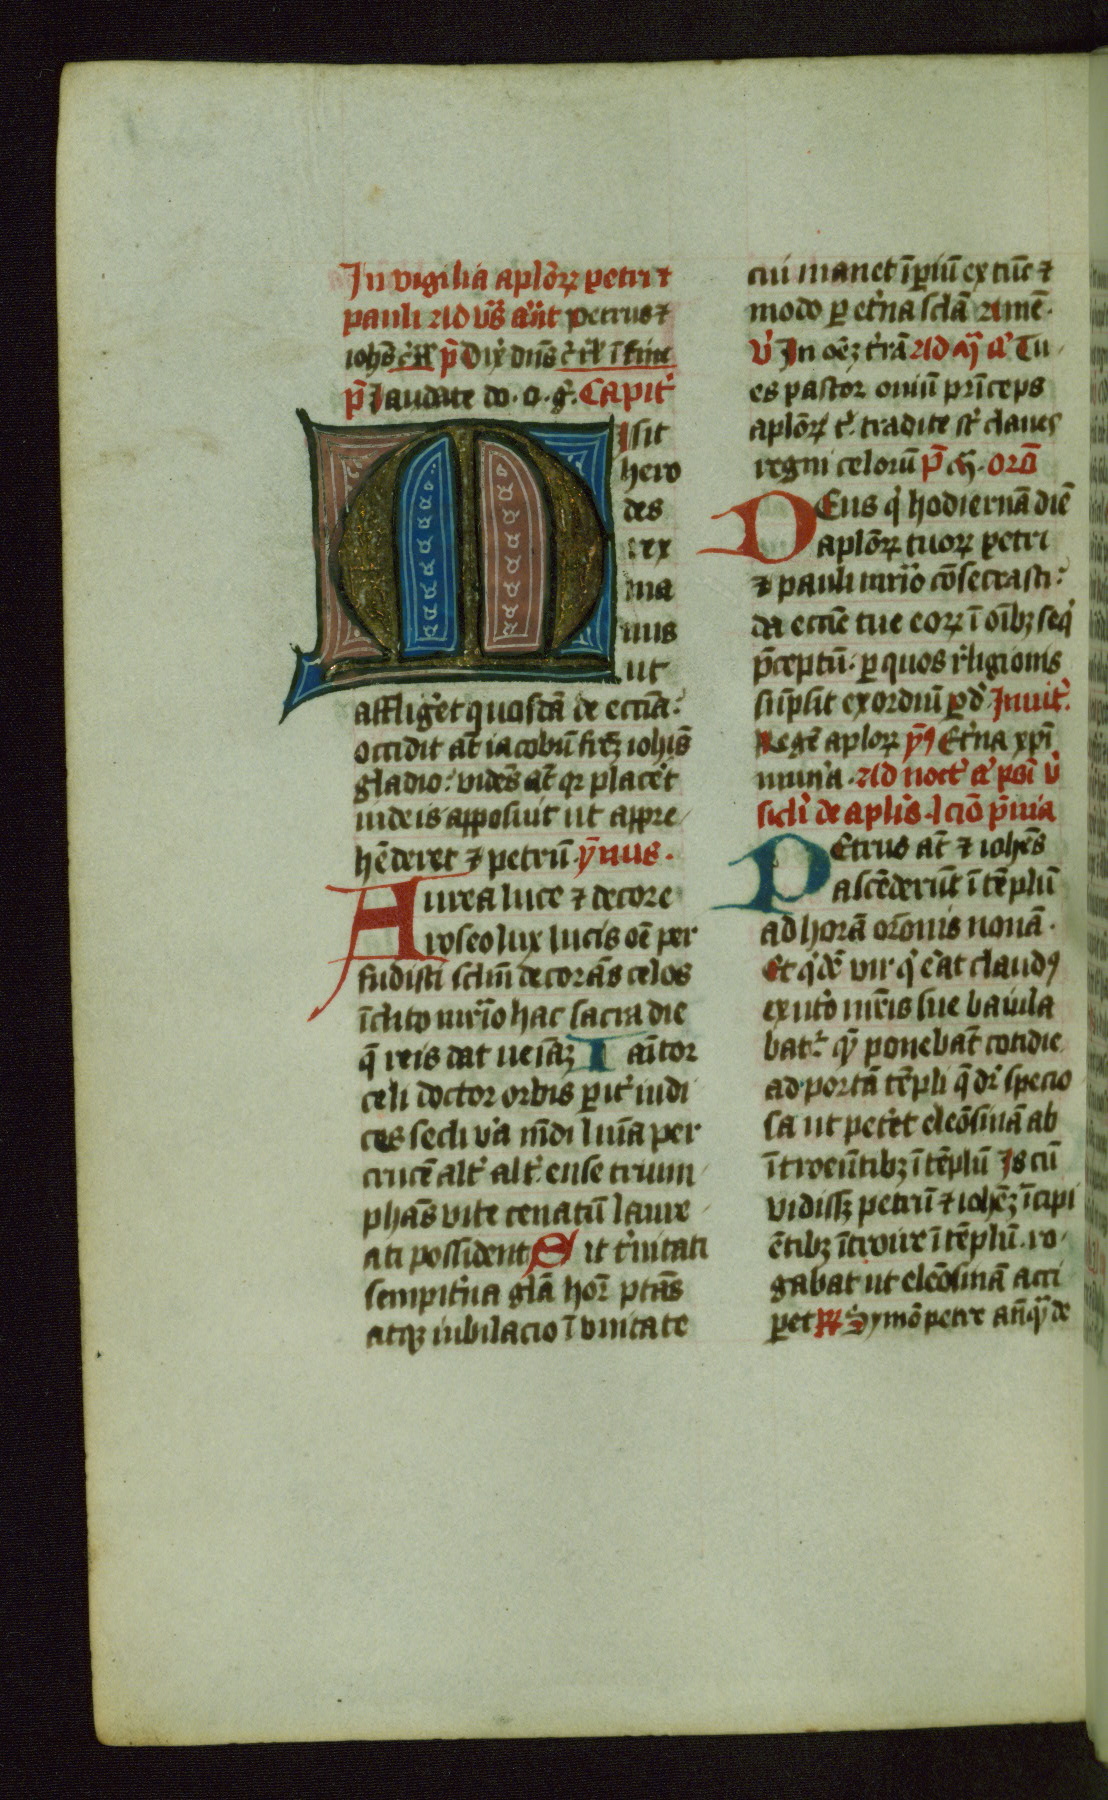 In vigilia aplōꝝ petri ⁊
pauli ad vr̄s añt petrus ⁊
iohs̄ p̄ Dix̄ dns̄ ī fine
p̄ laudate do. o. g̃. Capit̉
Isit
hero
des
rex
ma
nus
ut
affliget quosdā de eccīa:
occidit at̄ iacobū frēz iohīs
gladio: vidēs at̄ qr placet̉
iudeis apposuit ut appre
hēderet ⁊ petrū. ȳnus.
Aurea luce ⁊ decore
roseo lux lucis oē per
fudisti sclm̄ decorās celos
īclito mr̄io hac sacra die
q̄ reis dat veīaz Ianitor
celi doctor orbis ꝑit̉ iudi
ces secli v̉a mūdi luīa per
crucē alt̉ alt̉ ense trium
phās vite cenatū laure
ati possident Sit t̉nitati
sempit̉na glā hor̄ ptās
atqꝫ iubilacio ī vnitate
cui manet īꝑiū ex tūc ⁊
modo ꝑ et̉na sclā amē.
V̉ In oēz t̉rā Ad ả Tu
es pastor oviū prīceps
aplōꝝ t̉. tradite st̉ claues
regni celorū p̄ . orō
Deus q̉ hodiernā diē
aplōꝝ tuoꝝ petri
⁊ pauli mr̄io cōsecrasti:
da eccīe tue eoꝝ ī oībꝫ seq̉
p̄ceptū. ꝑ quos r̉ligionis
sūpsit exordiū ꝑ d̉. Inuit̉.
Regē aploꝝ yꝰ Et̉na xp̄i
mun̉a. Ad noct̉ ả v̉
de aplīs. lciō p̄ma
Petrus at̄ ⁊ iohēs
ascēderūt ī tēplū
ad horā orōnis nonā.
Et q̉dā vir q̉ ẻat claudꝰ
ex ut̉o mr̄is sue baiula
bat̉. q̄ ponebāt cotidie
ad portā tēpli q̄ dr̄ specio
sa ut pet̉et eleōsinā ab
ītroeūtibꝫ ī tēplū Is cū
vidissꝫ petrū ⁊ iohēz īcipi
ētibꝫ ītroire ī tēplū. ro
gabat ut eleōsinā acci
peret R̸ Symō petre anq̄ de